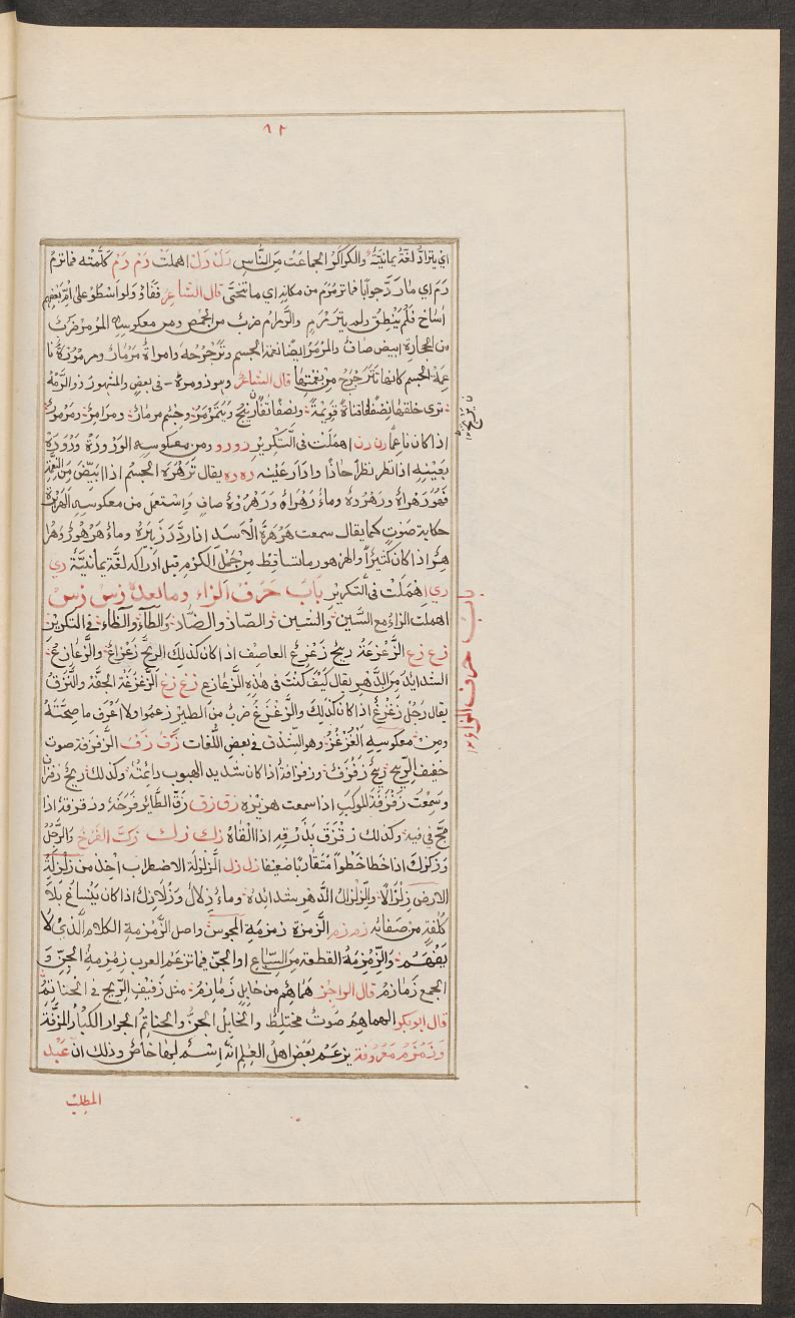 ٩٢
اي يتراد لغة يمانية والكراكر الجماعات من الناس رل رل اهملت رم رم كلمته فما ترم
رم اي مارد جوابا فما ترمرم من مكانه اي ما تنحى قال الشاعر
اساخ فلم ينطق ولم يترمرم والرمرام ضرب من الحمض ومن معكوسه المرمر ضرب
من الحجارة ابيض صاف والمرمر ايضا نعمة الجسم وترجرجه وامراة مرمارة ومرمورة نا
عمة الجسم كانها تترجرج من نعمتها قال الشاعر وهو ذو الرمة
ترى خلقها نصفا قناة قويمة ونصفا نقا يرتج ويتمرمر وجسم مرمار ومرامر ومرمور
اذا كان ناعما رن رن اهملت في التكرير رو رو ومن معكوسه الورورة ورورة
بعينيه اذا نظر نظرا حادا وادار عينه ره ره يقال ترهره الجسم اذا ابيض من النعمة
فهو رهراه ورهروه وماء رهراه ورهروه صاف واستعمل من معكوسه الهرهرة
حكاية صوت كما يقال سمعت هرهرة الاسد اذا ردد زئيره وماء هرهور وهرا
هر اذا كان كثيرا والهرهور ما تساقط من حمل الكرم قبل ادراكه لغة يمانية ري
ري اهملت في التكرير باب حرف الزاء وما بعده زس زس
اهملت الزاء مع السين والشين والصاد والضاد والطاء والظاء في التكرير
زع زع الزعزعة ريح زعزع العاصف اذا كان كذلك الريح زعزاع والزعازع
الشدايد من الدهر يقال كيف كنت في هذه الزعازع زغ زغ الزغزغة الخفة والنزق
يقال رجل زغزغ اذا كان كذلك والزغزغ ضرب من الطير زعموا ولا اعرف ما صحته
ومن معكوسه الغزغز وهو الشدق في بعض اللغات زف زف الزفزفة صوت
خفيف الريح ريح زفزف وزفزافة اذا كان شديد الهبوب دائمته وكذلك ريح زفزاف
وسمعت زفزفة الموكب اذا سمعت هزيزه زق زق زق الطاير فرخه وزقزقه اذا
مج في فيه وكذلك زقزق بذرقه اذا القاه زك زك زكت الفرخ والرجل
وزكزك اذا خطا خطوا متقاربا ضعيفا زل زل الزلزلة الاضطراب اخذ من زلزلة
الارض زلزالا والزلزال الدهر شدايده وماء زلال وزلازل اذا كان ينساغ بلا
كلفة من صفائه زم زم الزمزمة زمزمة المجوس واصل الزمزمة الكلام الذي لا
يفهم والزمزمة القطعة من السباع او الجن فيما تزعم العرب زمزمة الجن و
الجمع زمازم قال الراجز هماهم من خابل زمازم مثل زفيف الريح في الحناتم
قال ابوبكر الهماهم صوت مختلط والخابل الجن والحناتم الجرار الكبار المزفتة
وزمزم معروفة يزعم بعض اهل العلم انه اسم لها خاص وذلك ان عبد
المطلب
باب حرف الزاء